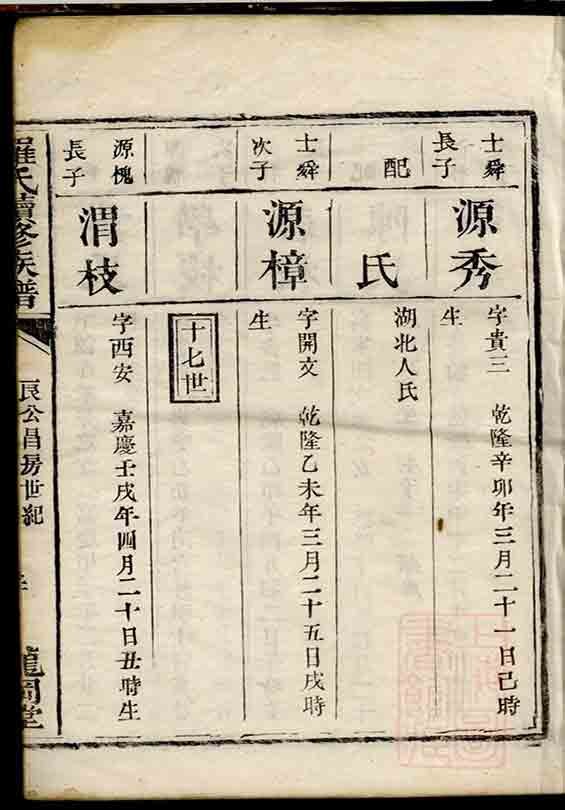 士舜
長子
源秀
字貴三　乾隆辛卯年三月二十一日己時
生
配
氏
湖北人氏
士舜
次子
源樟
字開文　乾隆乙未年三月二十五日戌時
生
十七世
源槐
長子
渭枝
字西安　嘉慶壬戌年四月二十日丑時生
羅氏續修族譜
良公昌房世紀
龍岡堂